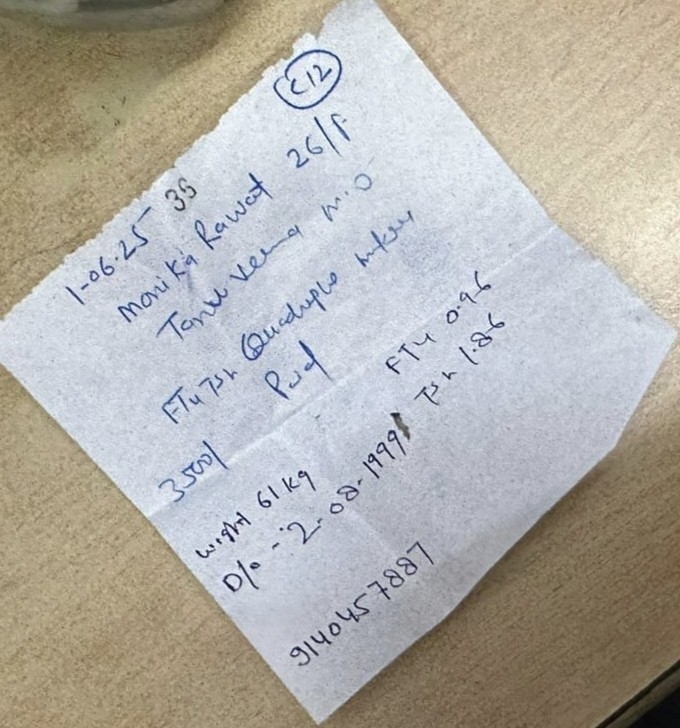 C12
1-06-25 35
Monika Rawat 26/F
Tanu Verma M.O
FT4 TSH Quadruple
Paid
3500/
FT4 0.96
TSH 1.86
Wight 61 kg
D/o -: 2-08-1999
9140457887